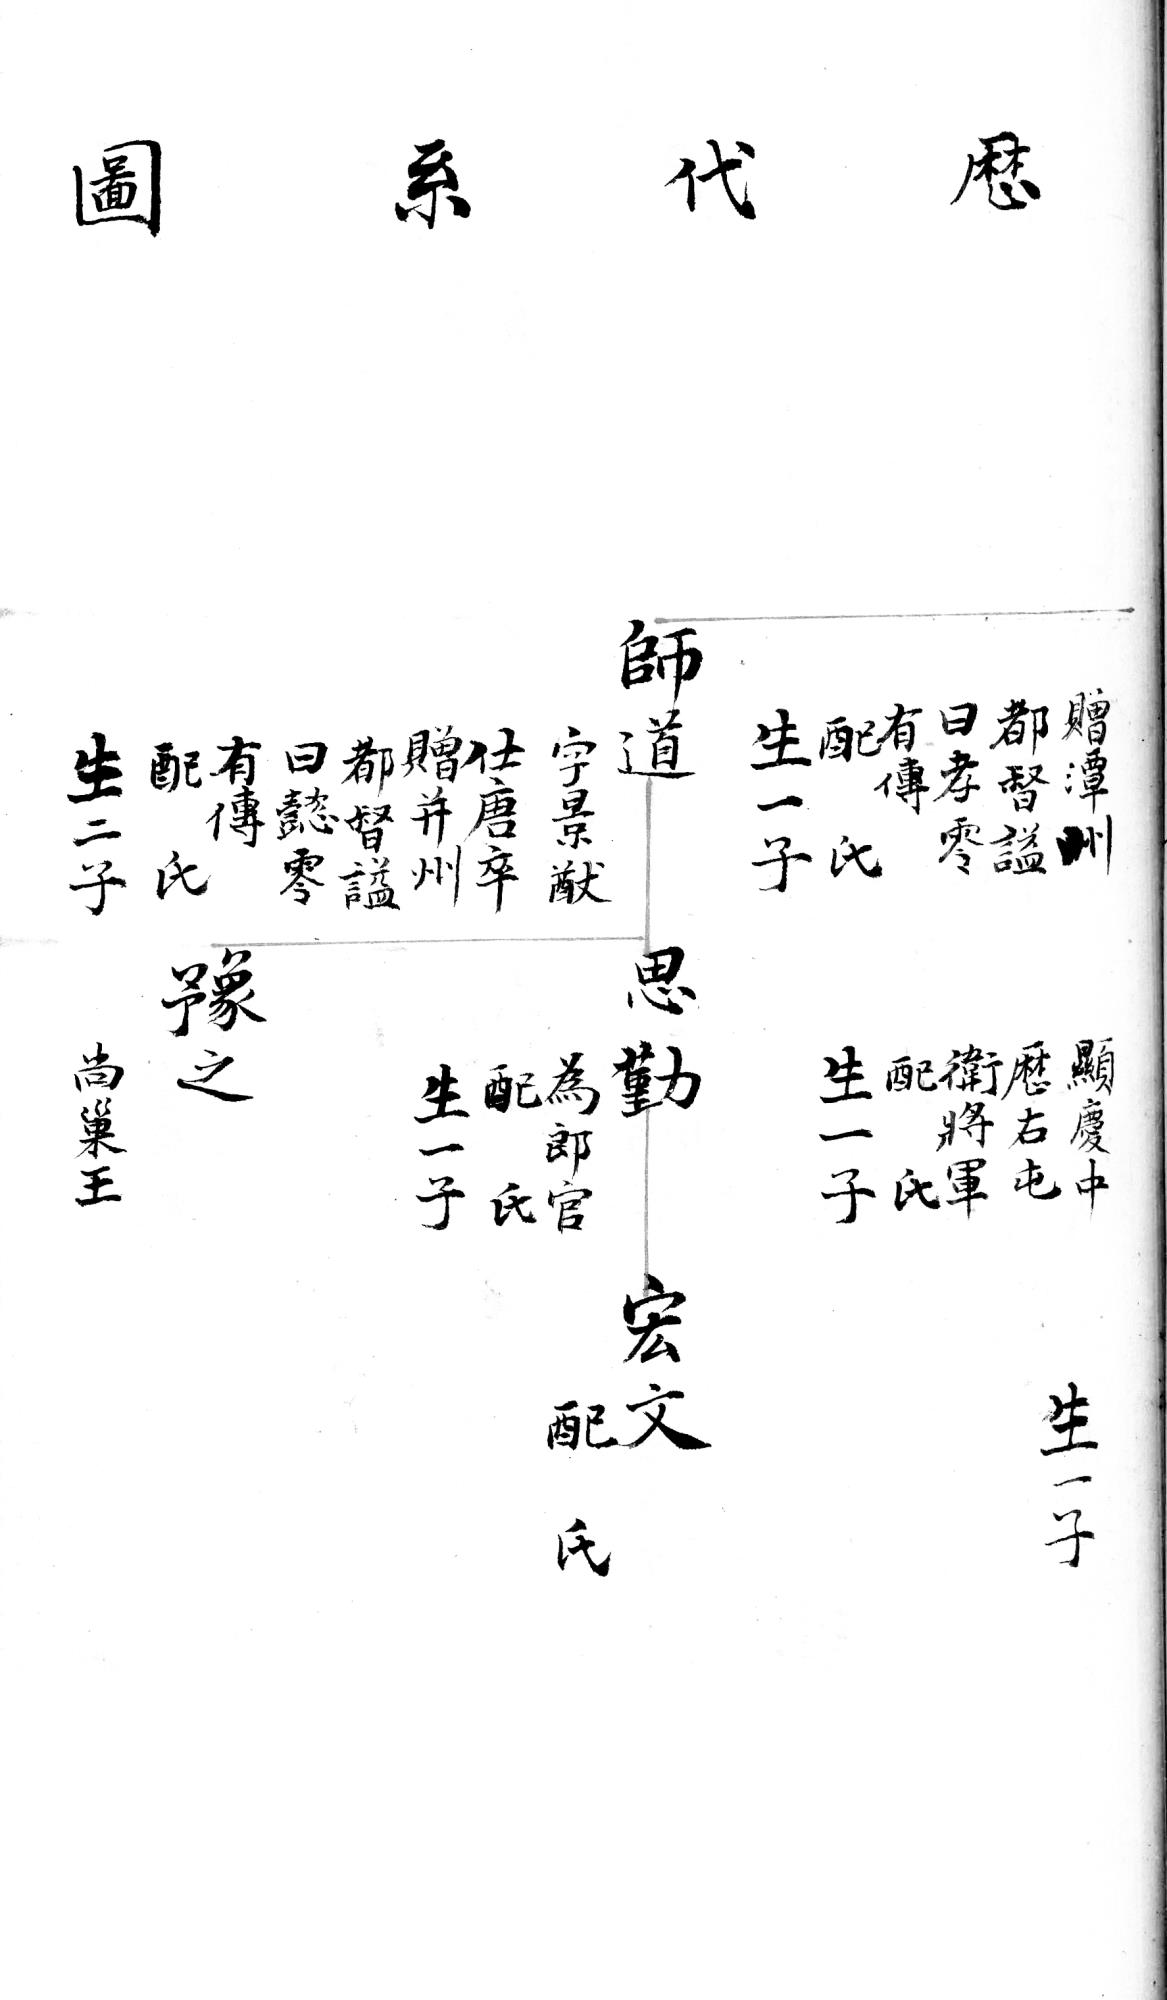 歷代系圖
贈潭州
都督謚
曰孝零
有傳
配 氏
生一子
師道
字景猷
仕唐卒
贈并州
都督謚
曰懿零
有傳
配 氏
生二子
顯慶中
歷右屯
衛將軍
配 氏
生一子
思勤
為郎官
配 氏
生一子
豫之
尚巢王
生一子
宏文
配 氏